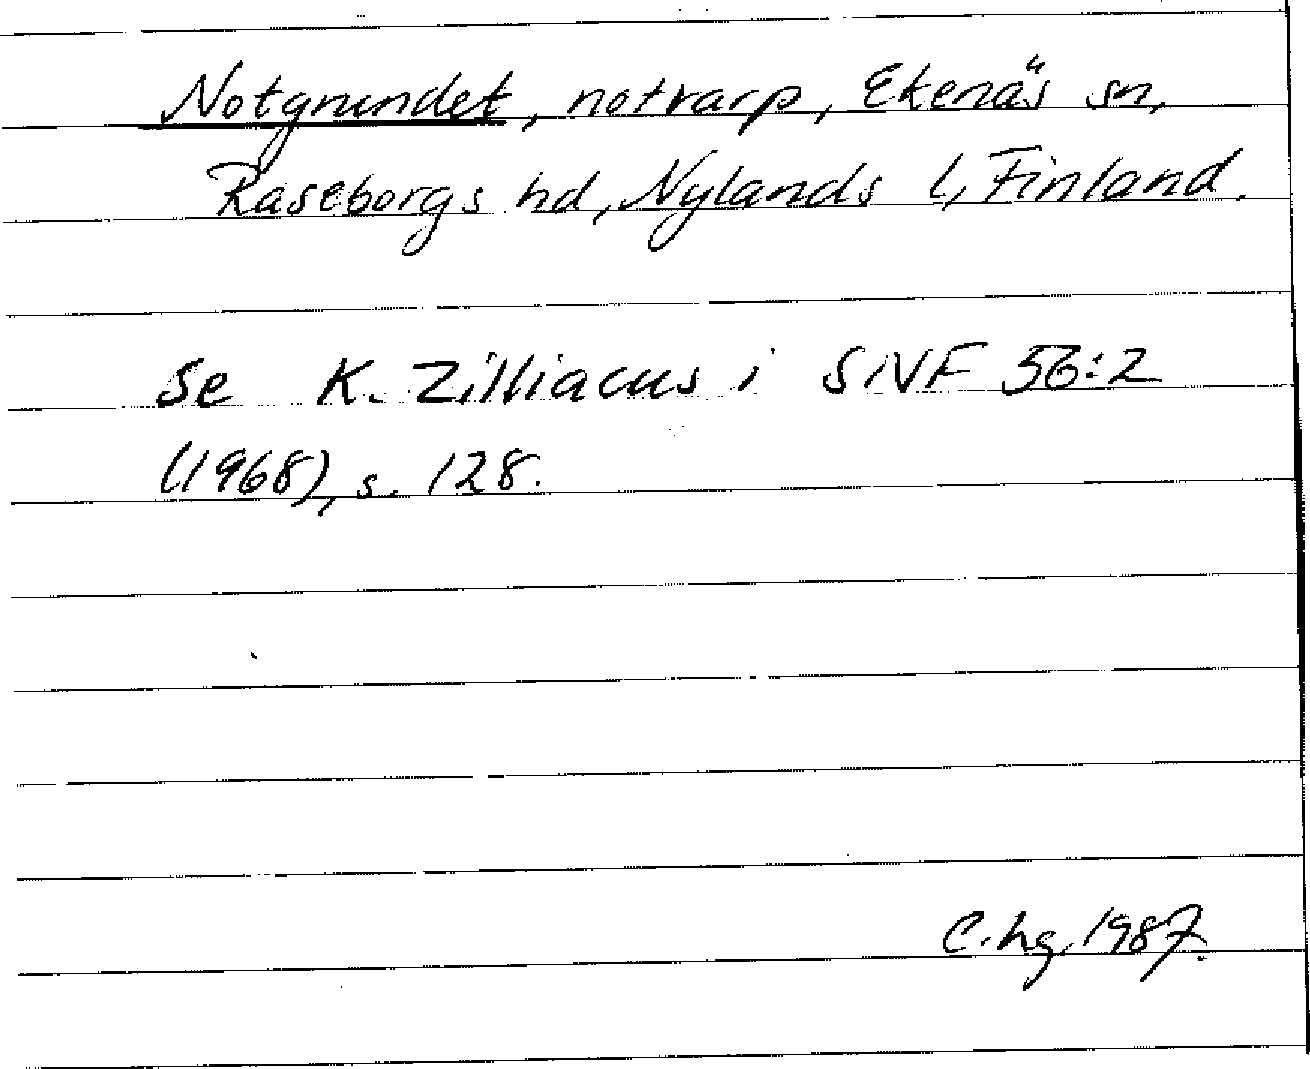 Notgrundet, notvarp, Ekenäs sn,
Raseborgs hd, Nylands l, Finland.
Se K. Zilliacus i SNF 56:2
(1968), s. 128.
C. hg. 1987.